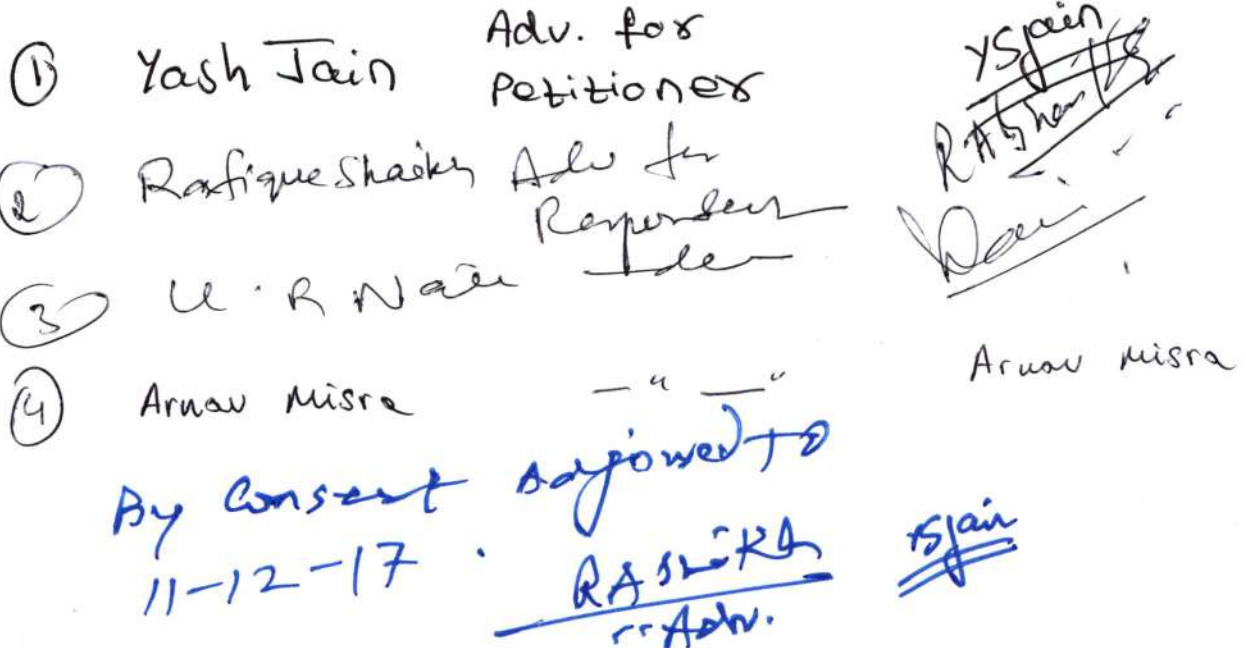 ① Yash Jain Adv. for
Petitioner YSJain
② Rafique Shaikh Adv for
Respondent
③ U. R Naik Ide
④ Arnav Misra —"—" Arnav Misra
By Consent adjourned to
11-12-17. YSJain
Adv.